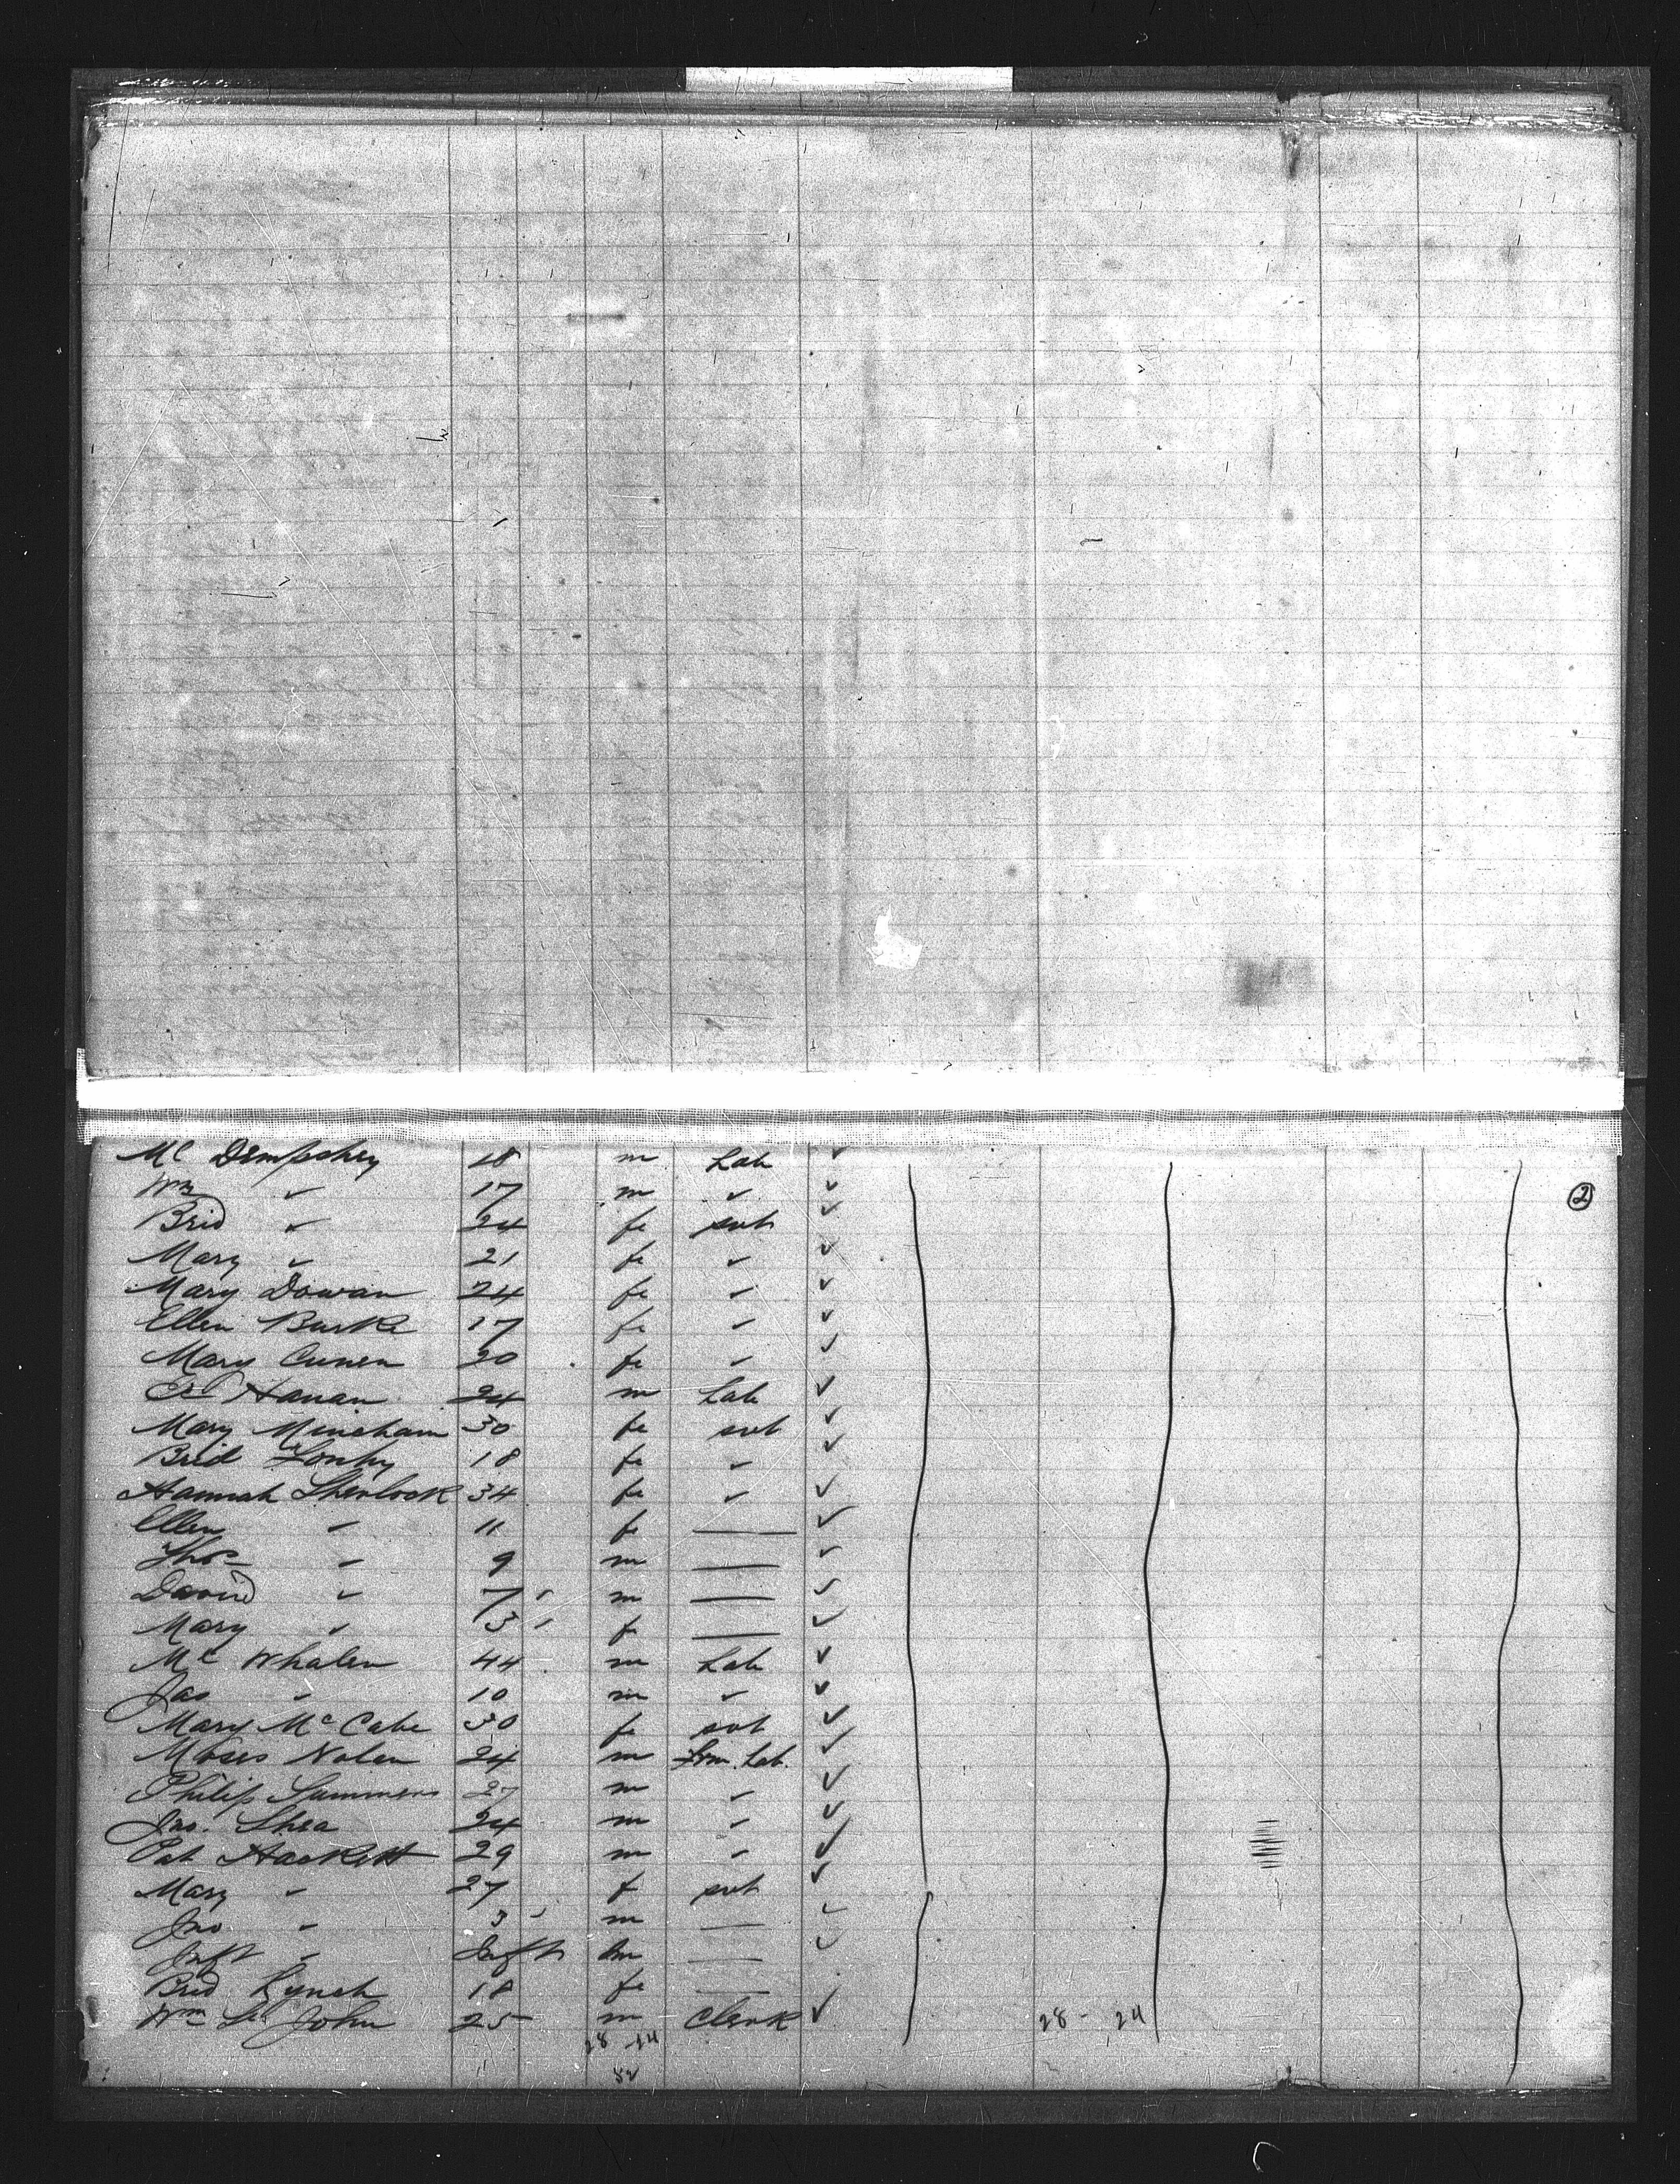 Mc Dempshey 18 m Lab ✓
Wm ✓ 17 m ✓ ✓
Brid ✓ 24 fe svt ✓
Mary ✓ 21 fe ✓ ✓
Mary Dowan 24 fe ✓ ✓
Ellen Burke 17 fe ✓ ✓
Mary Cunen 20 fe ✓ ✓
Hanan 24 m Lab ✓
Mary Mincham 30 fe svt ✓
Brid 18 fe ✓ ✓
Hannah Sherlock 34 fe ✓ ✓
Ellen ✓ 11 f — ✓
Thos ✓ 9 m — ✓
David ✓ 7 m — ✓
Mary ✓ 3 f — ✓
Mc Whalen 44 m Lab ✓
Jas ✓ 10 m ✓ ✓
Mary McCabe 30 fe svt ✓
Moses Nolan 24 m Frm. Lab. ✓
Philip Summers 27 m ✓ ✓
Jno. Shea 24 m ✓ ✓
Pat Hackett 29 m ✓ ✓
Mary ✓ 27 f svt ✓
Jno ✓ 3 m — ✓
Inft ✓ Inft m — ✓
Brid Lynch 18 fe —
Wm St John 25 m Clerk ✓ 28 - 24
28 - 24
52
2